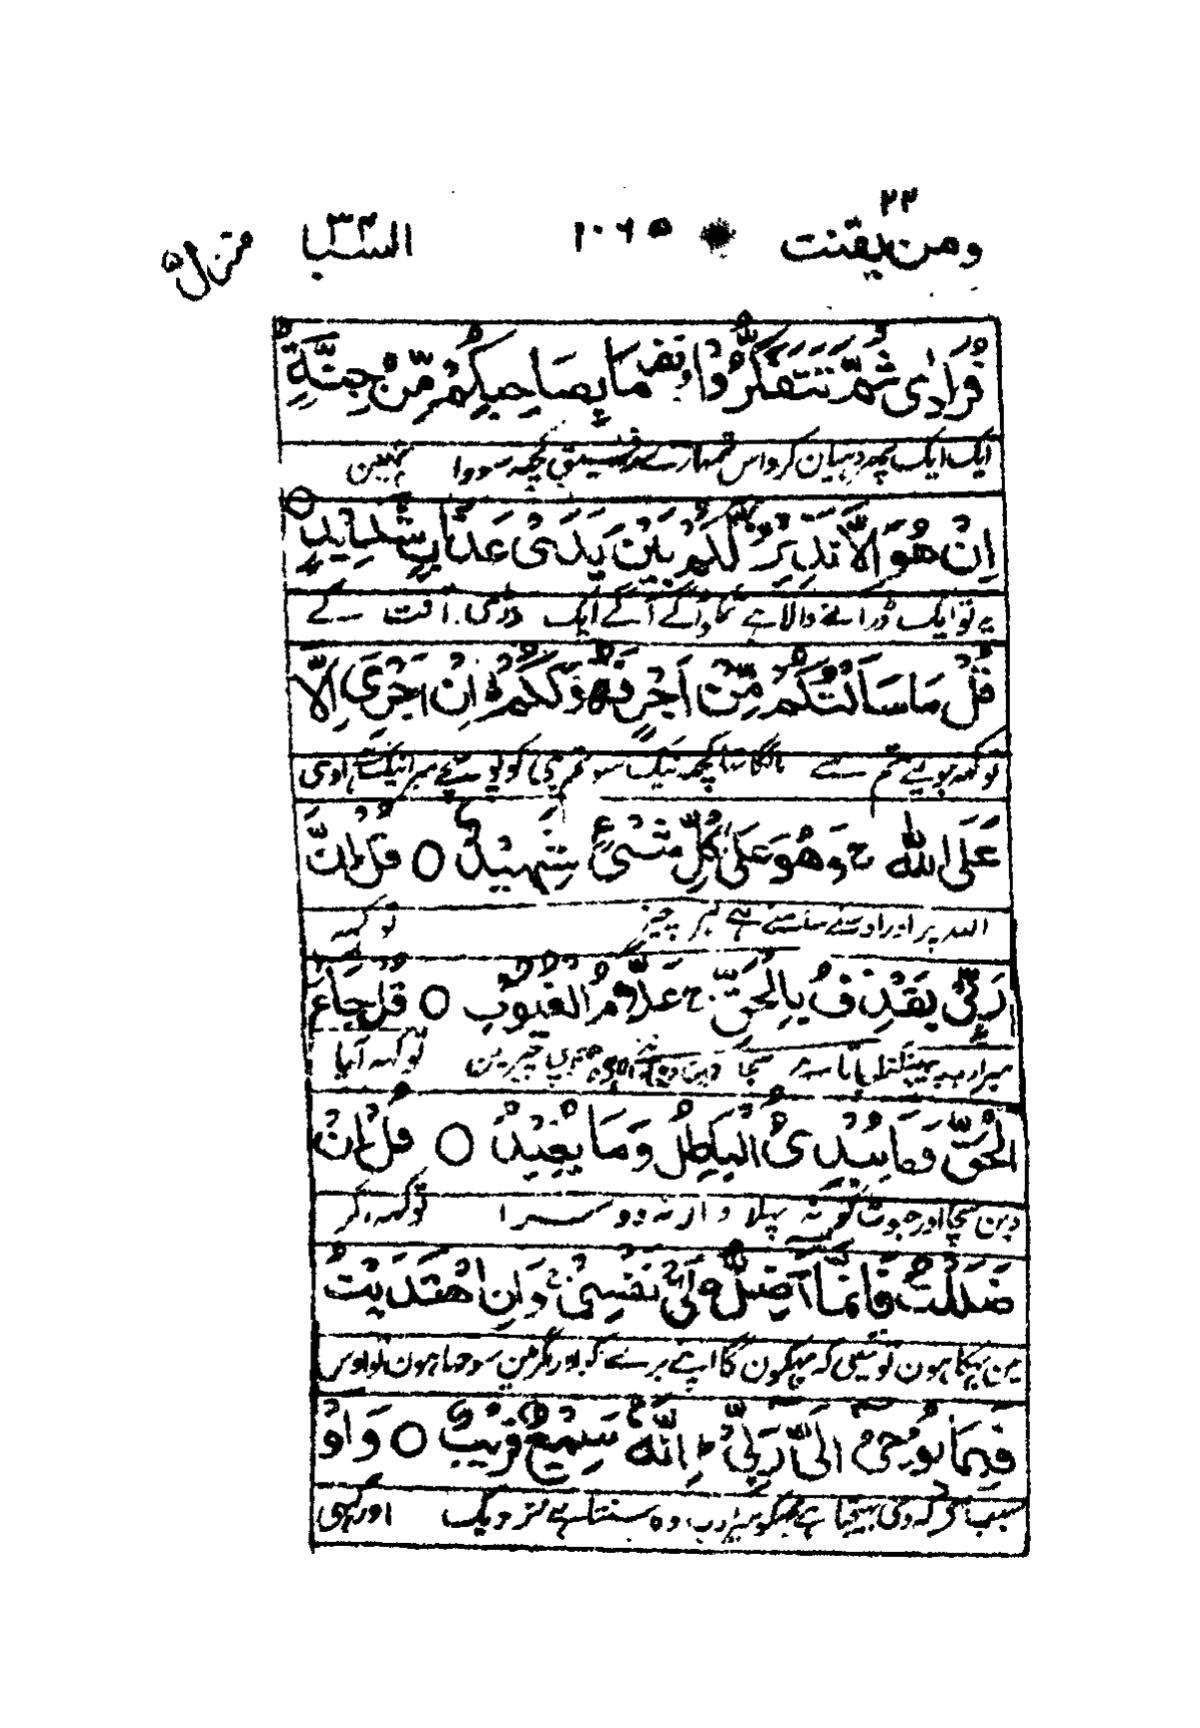 ومن یقنت ٢٢ ١٠٦٥ السبا ٣٤ منزل ٥
فُرَادٰى ثُمَّ تَتَفَكَّرُوْا وقف مَا بِصَاحِبِكُمْ مِّنْ جِنَّةٍ ط
ایک ایک پھر دہیان کرو اس تمہارے رفیق کچھ سودا نہین
اِنْ هُوَ اِلَّا نَذِيْرٌ لَّكُمْ بَيْنَ يَدَىْ عَذَابٍ شَدِيْدٍ ○
یہ تو ایک ڈرانے والا ہے تمکو آگے آگے ایک بڑی آفت کے
قُلْ مَا سَاَلْتُكُمْ مِّنْ اَجْرٍ فَهُوَ لَكُمْ ط اِنْ اَجْرِىَ اِلَّا
توکہہ جو مینے تم سے مانگا تھا کچھ نیگ سو تم ہی کو پہنچے میرا نیگ ہے اوسی
عَلَى اللّٰهِ ج وَهُوَ عَلٰى كُلِّ شَىْءٍ شَهِيْدٌ ○ قُلْ اِنَّ
اللہ پر اور اوسکے سامنے ہے ہر چیز توکہہ
رَبِّىْ يَقْذِفُ بِالْحَقِّ ج عَلَّامُ الْغُيُوْبِ ○ قُلْ جَاءَ
میرا رب پھینکتا جاتا ہے سچا دین چھپی چیزین توکہہ آیا
الْحَقُّ وَمَا يُبْدِئُ الْبَاطِلُ وَمَا يُعِيْدُ ○ قُلْ اِنْ
دین سچا اور جھوٹ کو نہ پہلا وار نہ دوسرا توکہہ اگر
ضَلَلْتُ فَاِنَّمَا اَضِلُّ عَلٰى نَفْسِىْ ج وَاِنِ اهْتَدَيْتُ
مین بہکا ہون تو یہی کہ بہکون گا اپنے برے کو اور اگر مین سوجھا ہون تو اوس
فَبِمَا يُوْحِىْ اِلَىَّ رَبِّىْ ط اِنَّهٗ سَمِيْعٌ قَرِيْبٌ ○ وَلَوْ
سبب کہ وحی بھیجتا ہے مجھکو میرا رب وہ سنتا ہے نزدیک اور کبھی